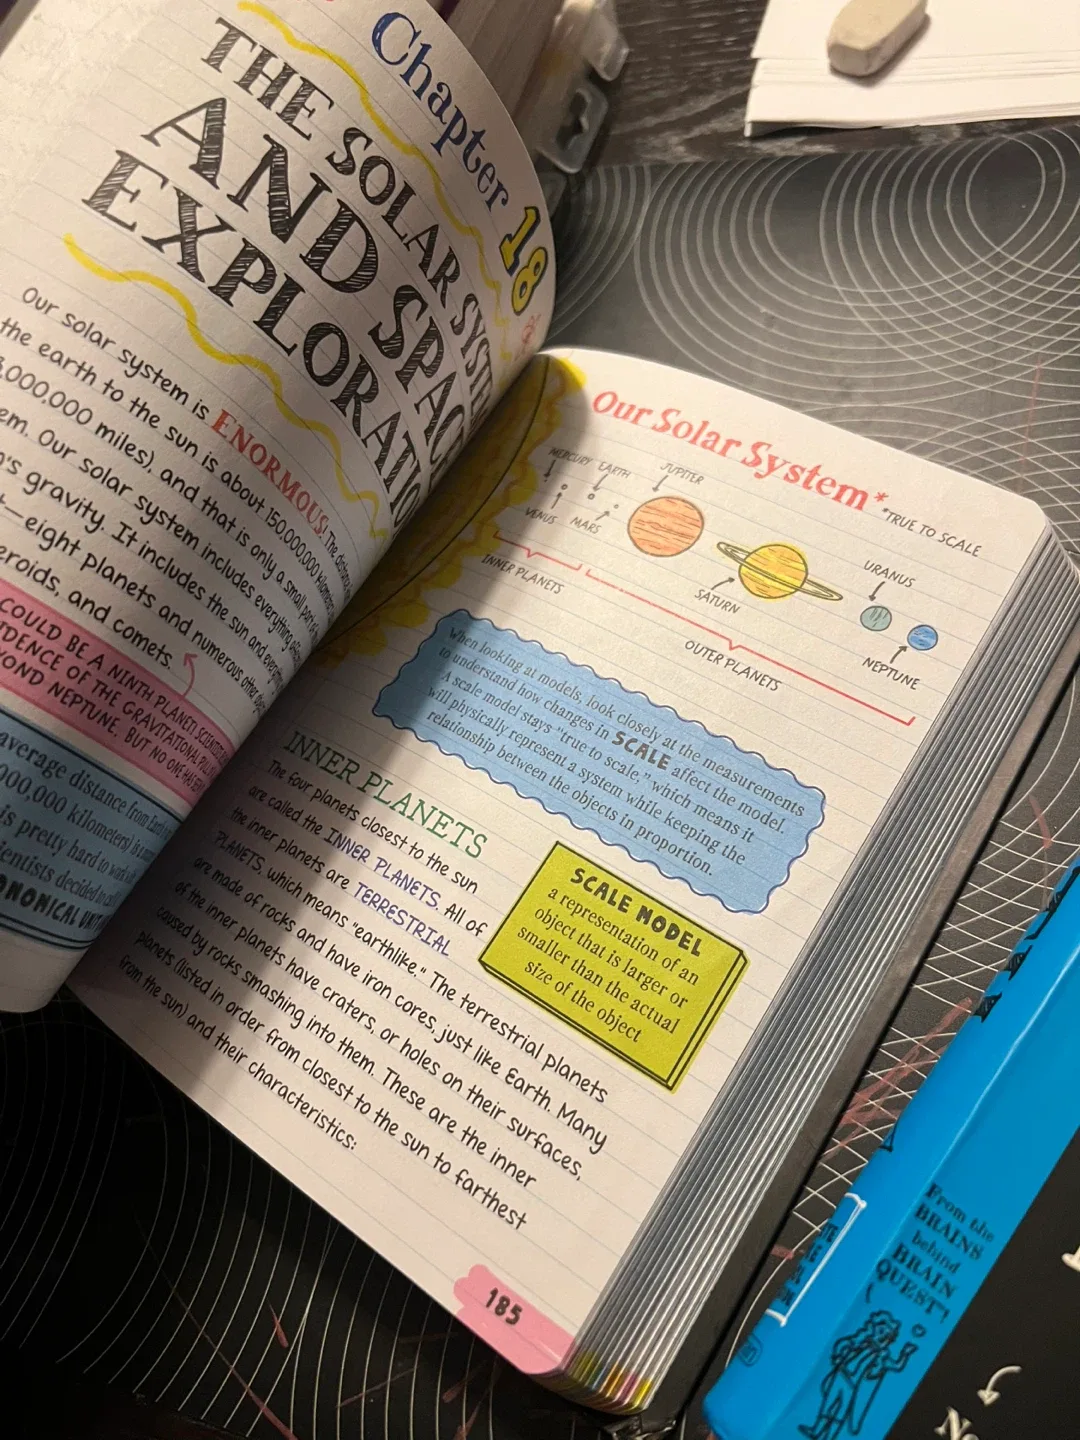 Chapter 18
THE SOLAR SYSTEM
AND SPACE
EXPLORATIO
Our solar system is ENORMOUS! The distance
the earth to the sun is about 150,000,000 kilometers
,000,000 miles), and that is only a small part of
em. Our solar system includes everything
n's gravity. It includes the sun and every
t—eight planets and numerous other
eroids, and comets.
COULD BE A NINTH PLANET! SCIENTISTS
IDENCE OF THE GRAVITATIONAL PULL
YOND NEPTUNE, BUT NO ONE HAS
average distance from Earth
000,000 kilometers) is a
is pretty hard to work with
ientists decided to call
ONOMICAL UNIT
Our Solar System*
*TRUE TO SCALE
MERCURY EARTH JUPITER
VENUS MARS
URANUS
INNER PLANETS
SATURN
NEPTUNE
OUTER PLANETS
When looking at models, look closely at the measurements
to understand how changes in SCALE affect the model.
A scale model stays "true to scale," which means it
will physically represent a system while keeping the
relationship between the objects in proportion.
INNER PLANETS
The four planets closest to the sun
are called the INNER PLANETS. All of
the inner planets are TERRESTRIAL
PLANETS, which means "earthlike." The terrestrial planets
are made of rocks and have iron cores, just like Earth. Many
of the inner planets have craters, or holes on their surfaces,
caused by rocks smashing into them. These are the inner
planets (listed in order from closest to the sun to farthest
from the sun) and their characteristics:
SCALE MODEL
a representation of an
object that is larger or
smaller than the actual
size of the object
185
From the
BRAINS
behind
BRAIN
QUEST